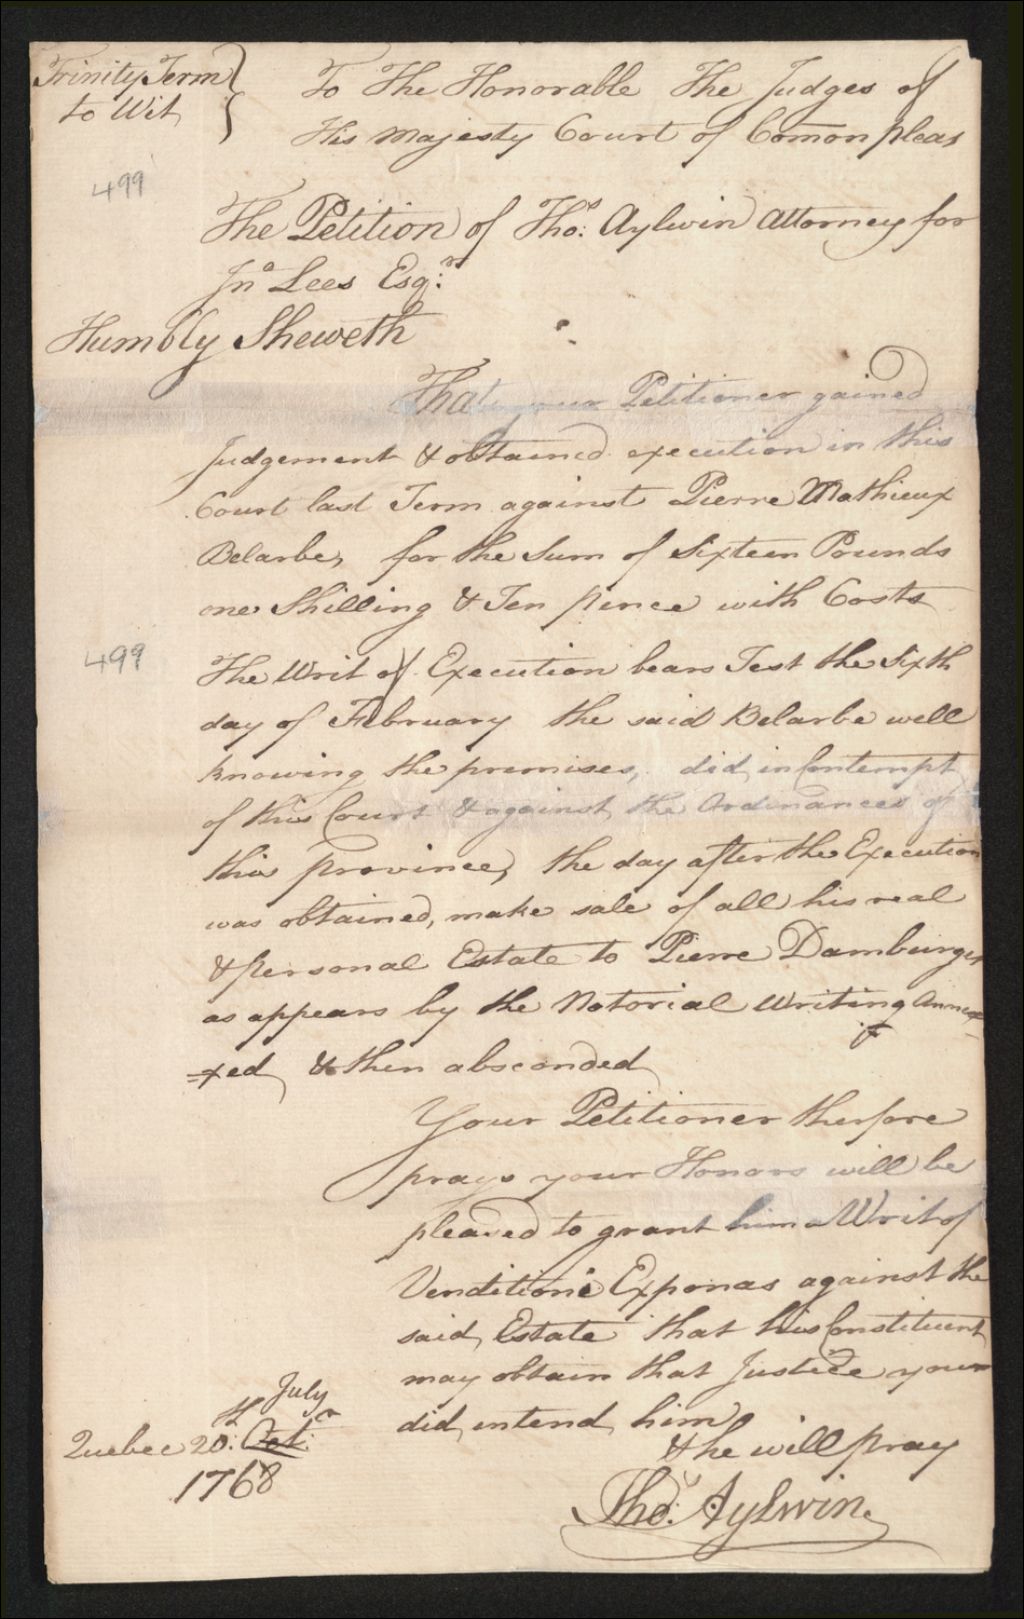 Trinity Term
to Wit
To The Honorable The Judges of
His Majesty Court of Comon pleas
499
The Petition of Thos: Aylwin Attorney for
Jno Lees Esqr:
Humbly Sheweth
That your Petitioner gained
Judgement & obtained execution in this
Court last Term against Pierre Mathieux
Belarbe, for the Sum of Sixteen Pounds
one Shilling & Ten pence with Costs
499
The Writ of Execution bears Test the Sixth
day of February the said Belarbe well
knowing the premises, did, in Contempt
of this Court & against the Ordinances of
this province, the day after the Execution
was obtained, make sale of all his real
& personal Estate to Pierre Damburges
as appears by the Notorial Writing Annex
=xed, & then absconded
Your Petitioner therfore
prays your Honors will be
pleased to grant him a Writ of
Venditioni Exponas against the
said, Estate that his Constituent
may obtain that Justice your
did, intend, him
& he will pray
July
Quebec 20th: Octr:
1768
Thos: Aylwin